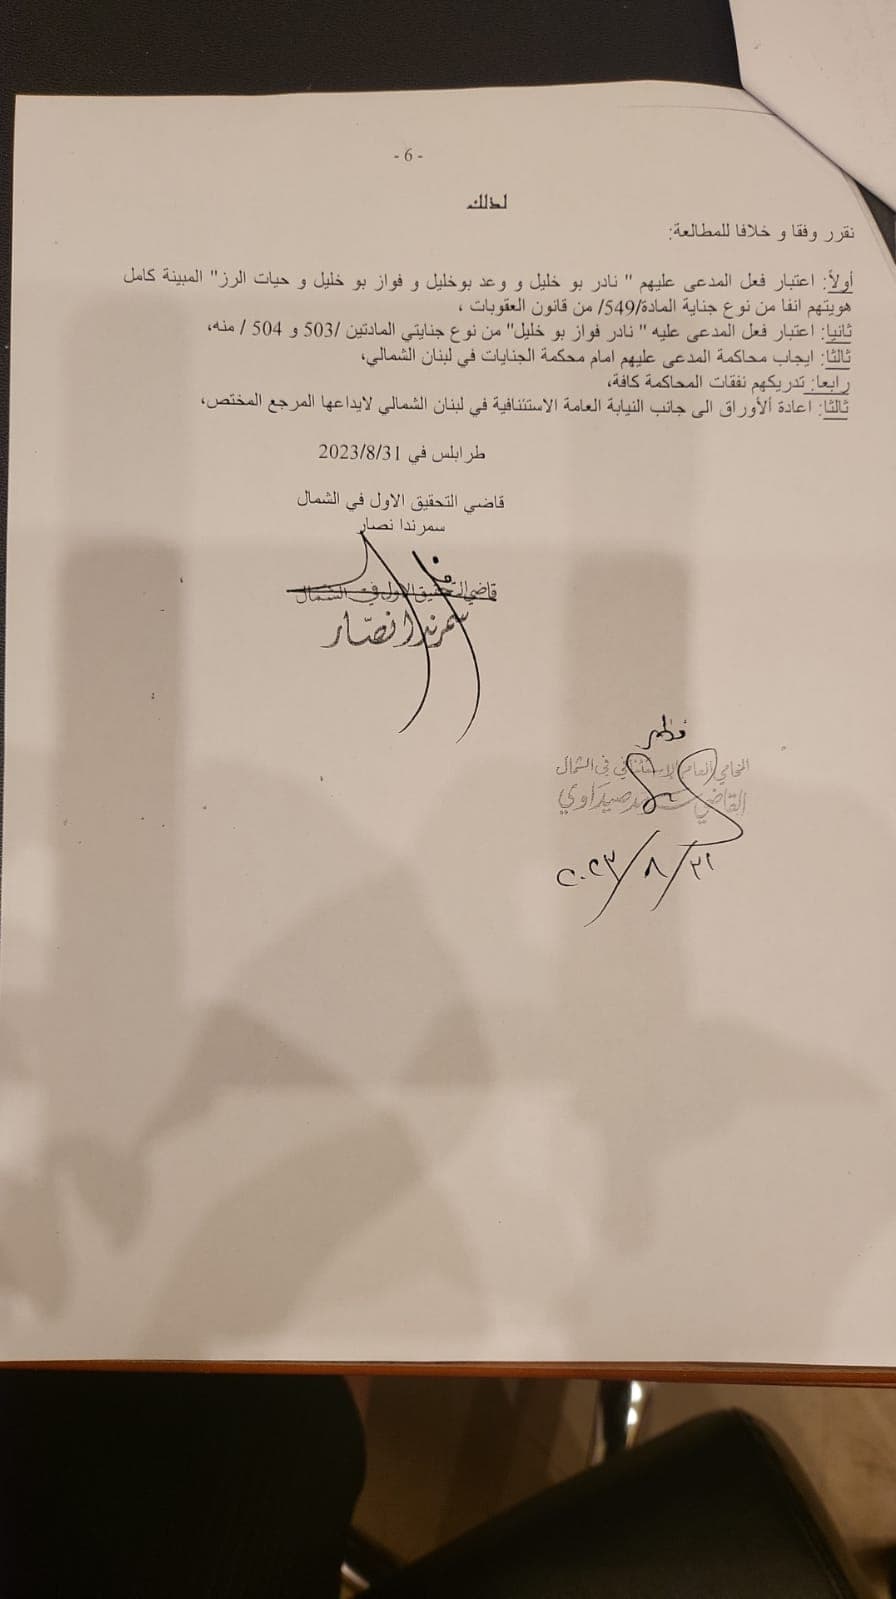 - 6 -
لذلك
نقرر وفقا و خلافا للمطالعة:
أولاً: اعتبار فعل المدعى عليهم " نادر بو خليل و وعد بوخليل و فواز بو خليل و حيات الرز" المبينة كامل
هويتهم انفا من نوع جناية المادة/549/ من قانون العقوبات ،
ثانيا: اعتبار فعل المدعى عليه " نادر فواز بو خليل" من نوع جنايتي المادتين /503 و 504 / منه،
ثالثا: ايجاب محاكمة المدعى عليهم امام محكمة الجنايات في لبنان الشمالي،
رابعا: تدريكهم نفقات المحاكمة كافة،
ثالثا: اعادة ألأوراق الى جانب النيابة العامة الاستئنافية في لبنان الشمالي لايداعها المرجع المختص،
طرابلس في 2023/8/31
قاضي التحقيق الاول في الشمال
سمرندا نصار
قاضي التحقيق الاول في الشمال
سمرندا نصّار
المحامي العام الاستئنافي في الشمال
القاضي صيداوي
٢٠٢٣/٨/٣١